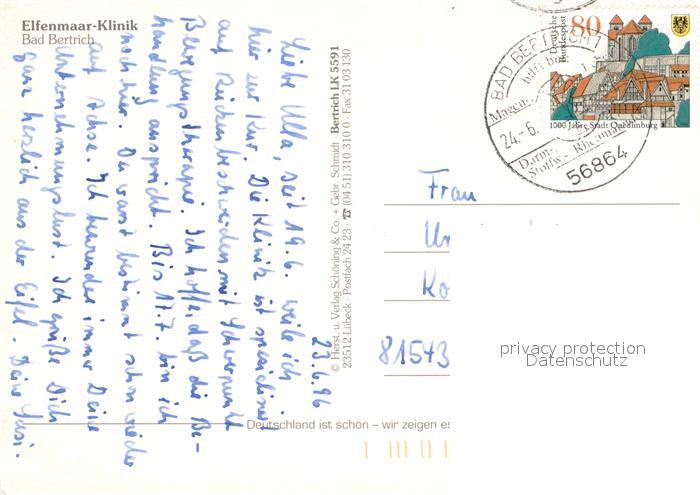 Elfenmaar-Klinik
Bad Bertrich
23.6.96
Liebe Ulla, seit 19.6. weile ich
hier zur Kur. Die Klinik ist spezialisiert
auf Rückenbeschwerden mit Schwerpunkt
Bewegungstherapie. Ich hoffe, daß die Be-
handlung anspricht. Bis 17.7. bin ich
noch hier. Du warst bestimmt schon wieder
auf Achse. Ich bewundere immer Deine
Unternehmungslust. Ich grüße Dich
ganz herzlich aus der Eifel. Deine
© Herst. u. Verlag Schöning & Co. + Gebr. Schmidt · Bertrich LK 5591
23512 Lübeck · Postfach 24 23 · ☎ (04 51) 310 310 0 · Fax 31 03 130
Deutsche
Bundespost
80
1000 Jahre Stadt Quedlinburg
BAD BERTRICH 1
hilft bei
Magen-
24.-6.
Darm-
Stoffw.- Rheuma
56864
Frau
Ur
Ko
81543
privacy protection
Datenschutz
Deutschland ist schön – wir zeigen es